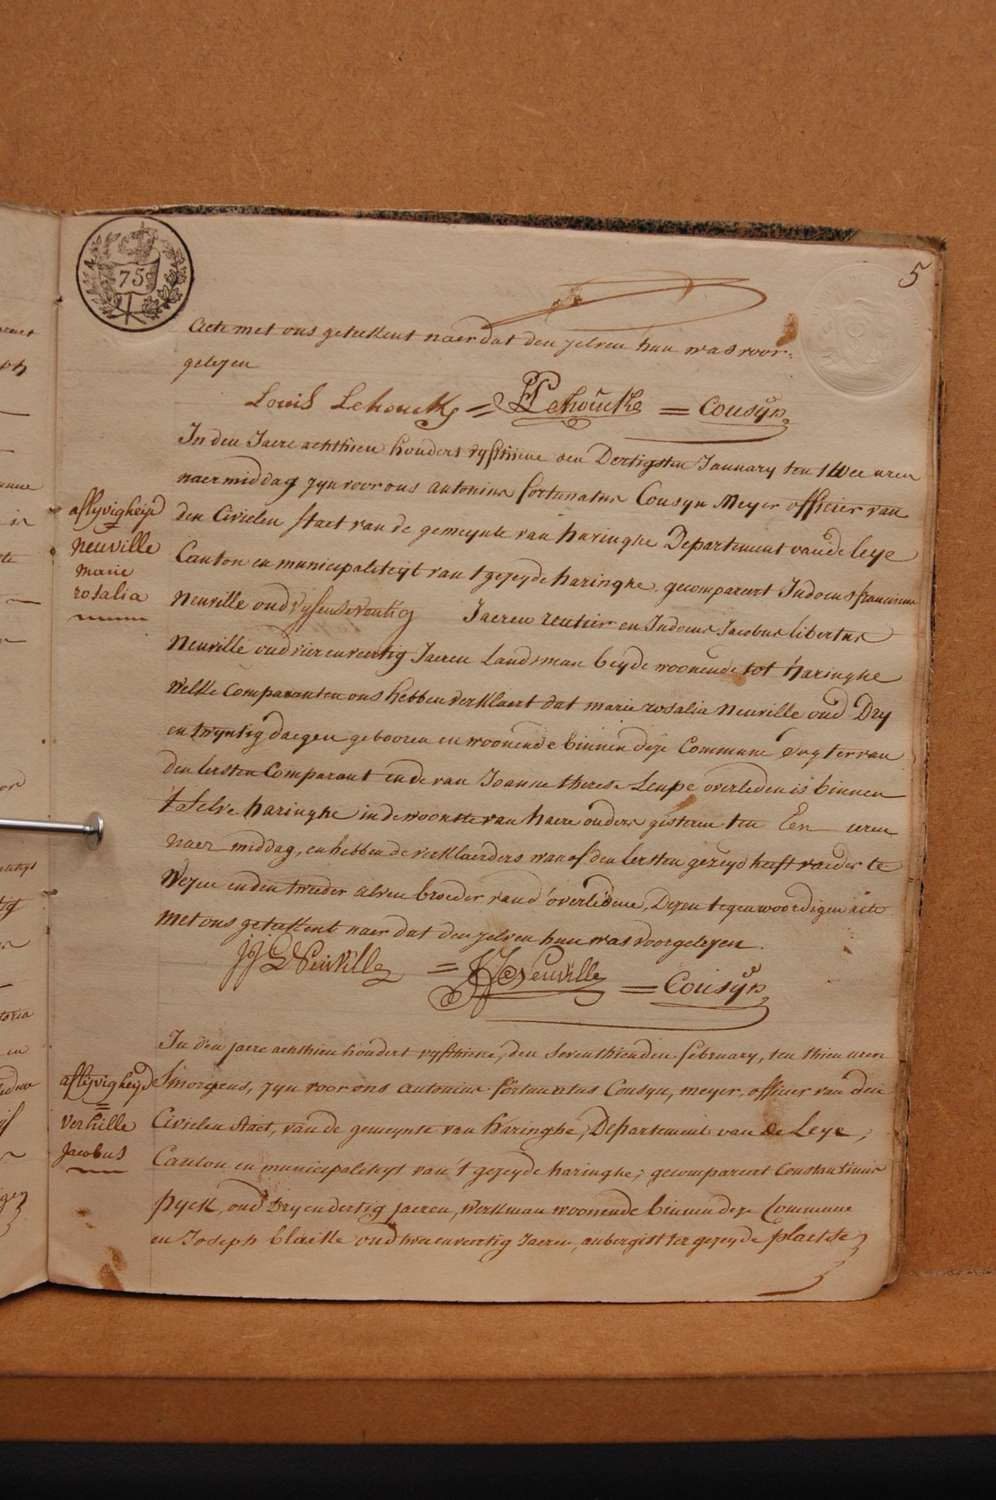 75
5
acte met ons geteekent naer dat den zelven hun was voor-
gelezen
Louis Lehoucke = PL Lehoucke = Cousÿn
In den Jaere achthien hondert vyfthiene den Dertigsten January ten twee uren
naermiddag zyn voor ons antonius fortunatus Cousyn Meyer officier van
den Civielen staet van de gemeynte van haringhe Departement van de leye
Canton en municipaliteyt van 't gezeyde haringhe gecompareert Judocus franciscus
Neuville oud vyfensevontig Jaeren rentier en Judocus Jacobus libertus
Neuville oud vierenveertig Jaeren Landsman beyde woonende tot haringhe
welke Comparanten ons hebben verklaert dat marie rosalia Neuville oud Dry
en twyntig daegen gebooren en woonende binnen deze Commune dogter van
den Eersten Comparant ende van Joanne therese Leupe overleden is binnen
't zelve haringhe in de woonste van haere ouders gisteren ten Een uren
naer middag, en hebben de verklaerders waer of den Eersten gezeyd heeft vaeder te
wezen en den tweeder alven broeder van d'overledene, Dezen tegenwoordigen acte
met ons geteekent naer dat den zelven hun was voorgelezen.
JJL Neuville = JF Neuville = Cousÿn
aflyvigheyd
Neuville
marie
rosalia
In den jaere achthien hondert vyfthiene, den seventhienden february, ten thien uren
Smorgens, zyn voor ons antonius fortunatus Cousyn, meyer, officier van den
Civielen Staet, van de gemeynte van haringhe, Departement van de Leye,
Canton en municipaliteyt van 't gezeyde haringhe, gecompareert Constantinus
pyck, oud Dry en dertig jaeren, werkman woonende binnen deze Commune
en Joseph Claeke oud tweenveertig Jaeren, aubergist ter gezeyde plaetse
aflyvigheyd
verhille
Jacobus